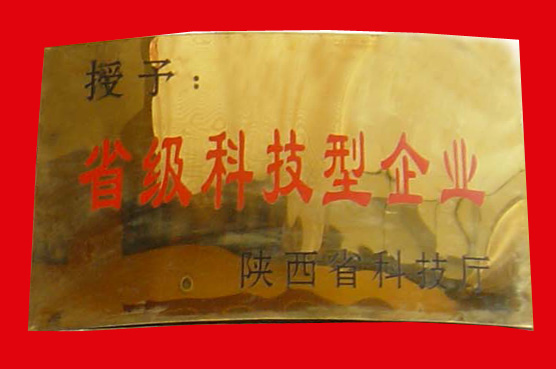 授予：
省级科技型企业
陕西省科技厅